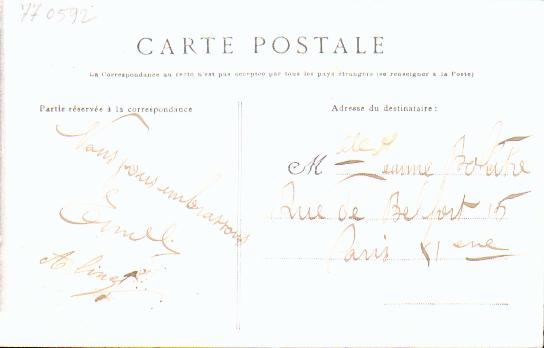 77 0592
CARTE POSTALE
La Correspondance au recto n'est pas acceptée par tous les pays étrangers (se renseigner à la Poste)
Partie réservée à la correspondance
Adresse du destinataire :
Vous embrassons
M elle Jeanne
Rue de Belfort 15
Paris XI eme